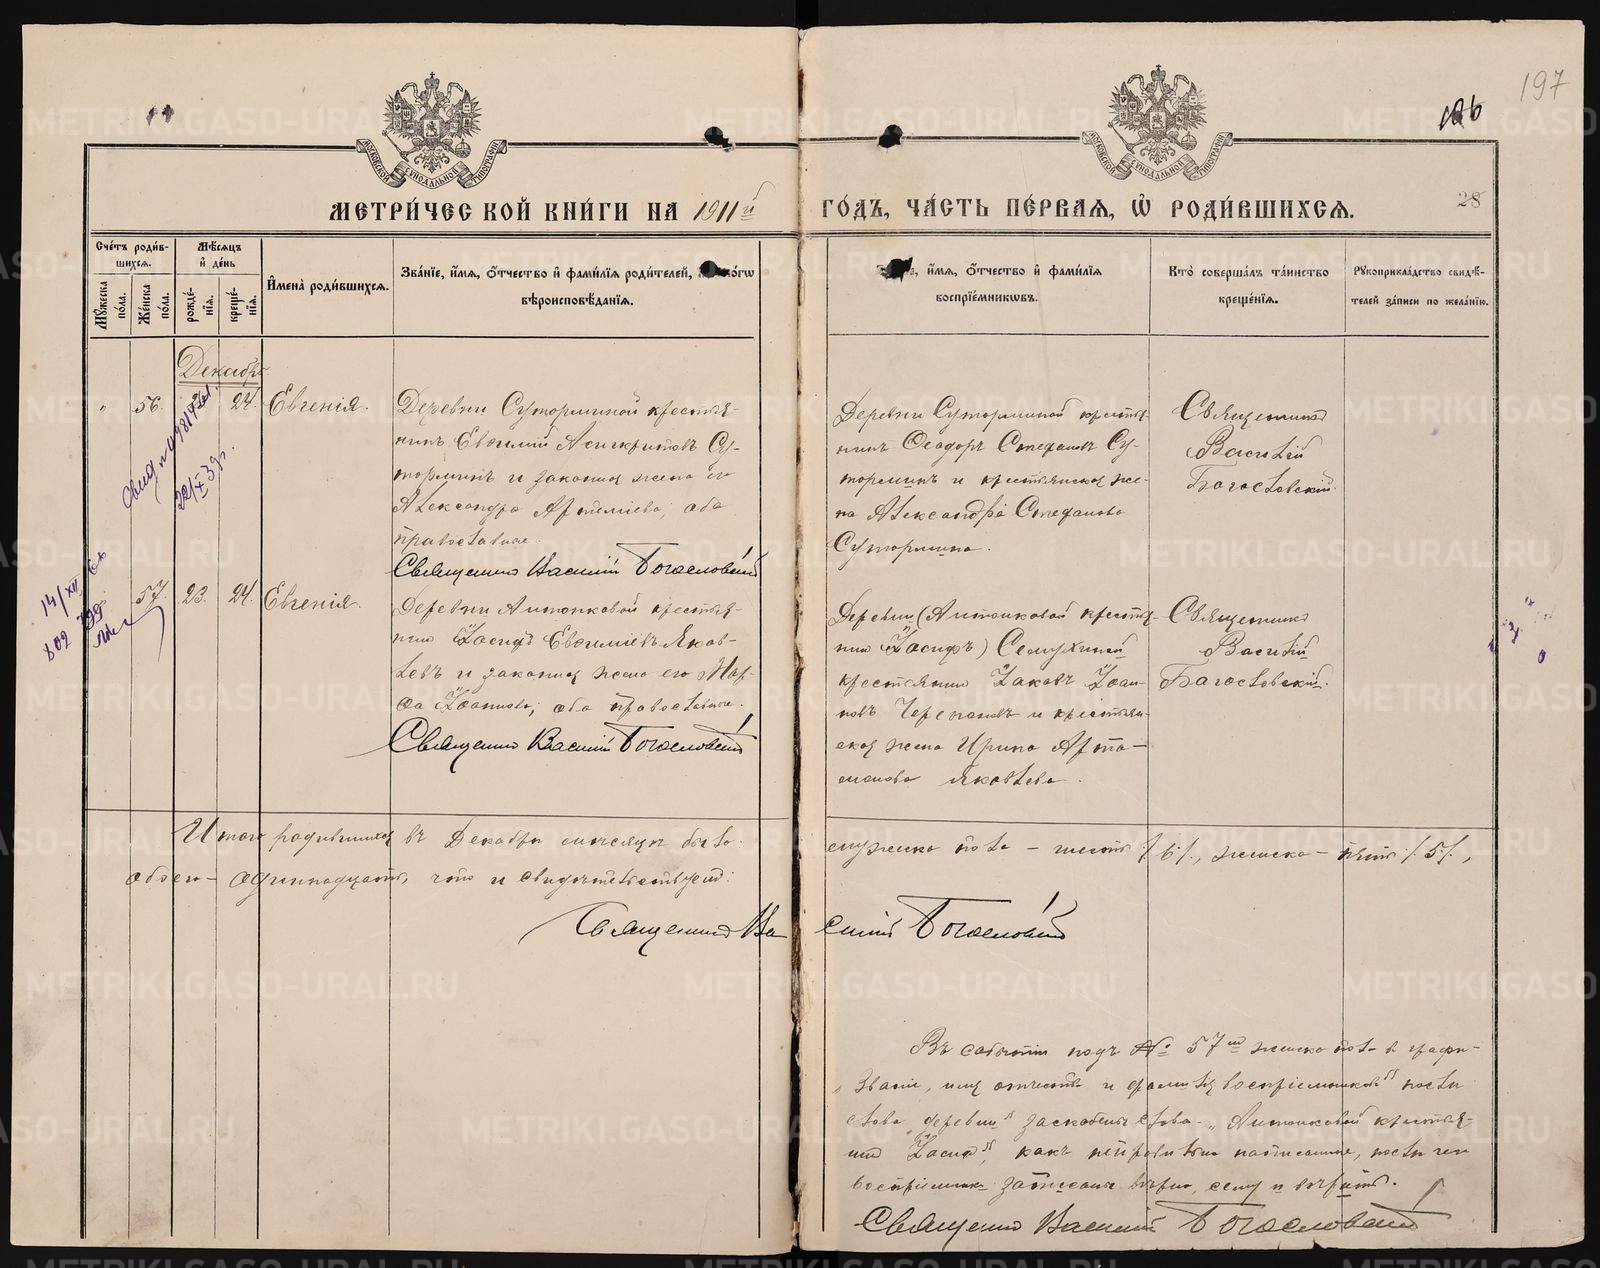 197
196
МОСКОВСКОЙ СѴНОДАЛЬНОЙ ТИПОГРАФІИ
МОСКОВСКОЙ СѴНОДАЛЬНОЙ ТИПОГРАФІИ
МЕТРИ́ЧЕСКОЙ КНИ́ГИ НА 1911й ГО́ДЪ, ЧА́СТЬ ПЕ́РВАЯ, Ѡ РОДИ́ВШИХСЯ.
28
Сче́тъ роди́в-
шихся.
Мꙋжеска по́ла.
Же́нска по́ла.
Мѣ́сяцъ и де́нь
рожде́-
нїя.
креще́-
нїя.
Имена̀ роди́вшихся.
Зва́нїе, и́мя, о́тчество и фами́лїя роди́телей, и ко́гѡ
вѣроисповѣ́данїя.
и́мя, о́тчество и фами́лїя
воспрїе́мникѡвъ.
Кто̀ соверша́лъ та́инство
креще́нїя.
Рꙋкоприкла́дство свидѣ́-
телей за́писи по жела́нїю.
Декабрь
" 56. 24. Евгенія.
Деревни Суторминой крестья-
нинъ Евѳимій Асигкритовъ Су-
торминъ и законная жена его
Александра Артеміева; оба
православные.
Священникъ Василій Богословскій
Деревни Суторминой кресть-
нинъ Ѳеодоръ Стефановъ Су-
торминъ и крестьянская же-
на Александра Стефанова
Сутормина.
Священникъ
Василій
Богословскій.
22/X 39г.
57. 23. 24. Евгенія.
Деревни Антонковой крестья-
нинъ Іосифъ Евѳиміевъ Яков-
левъ и законная жена его Мар-
ѳа Іоаннова; оба православные.
Священникъ Василій Богословскій
Деревни (Антонковой крестья-
нинъ Іосифъ) Семухиной
крестьянинъ Іаковъ Іоан-
новъ Черепановъ и крестьян-
ская жена Ирина Арта-
монова Яковлева.
Священникъ
Василій
Богословскій.
14/XII
802
Итого родившихся въ Декабрѣ мѣсяцѣ было: мужеска пола – шесть /.6/., женска – пять /.5/.,
обоего – одиннадцать, что и свидѣтельствуемъ:
Священникъ Василій Богословскій
Въ событіи подъ № 57мъ женска пола въ графѣ –
„Званіе, имя отчество и фамилія воспріемниковъ" послѣ
слова „деревни" заскоблены слова – „Антонковой крестья-
нинъ Іосифъ", какъ неправильно написанные, послѣ чего
воспріемники записаны вѣрно, сему и вѣрить.
Священникъ Василій Богословскій
METRIKI.GASO-URAL.RU